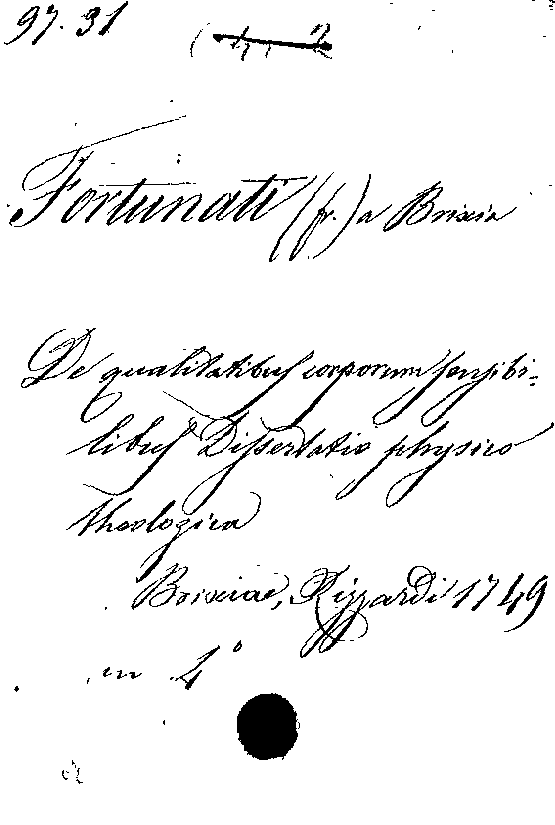 97.31
Fortunati (fr.) a Brixia
De qualitatibus corporum sensibi-
libus Dissertatio physico
theologica
Brixiae, Rizzardi 1749
in 4°